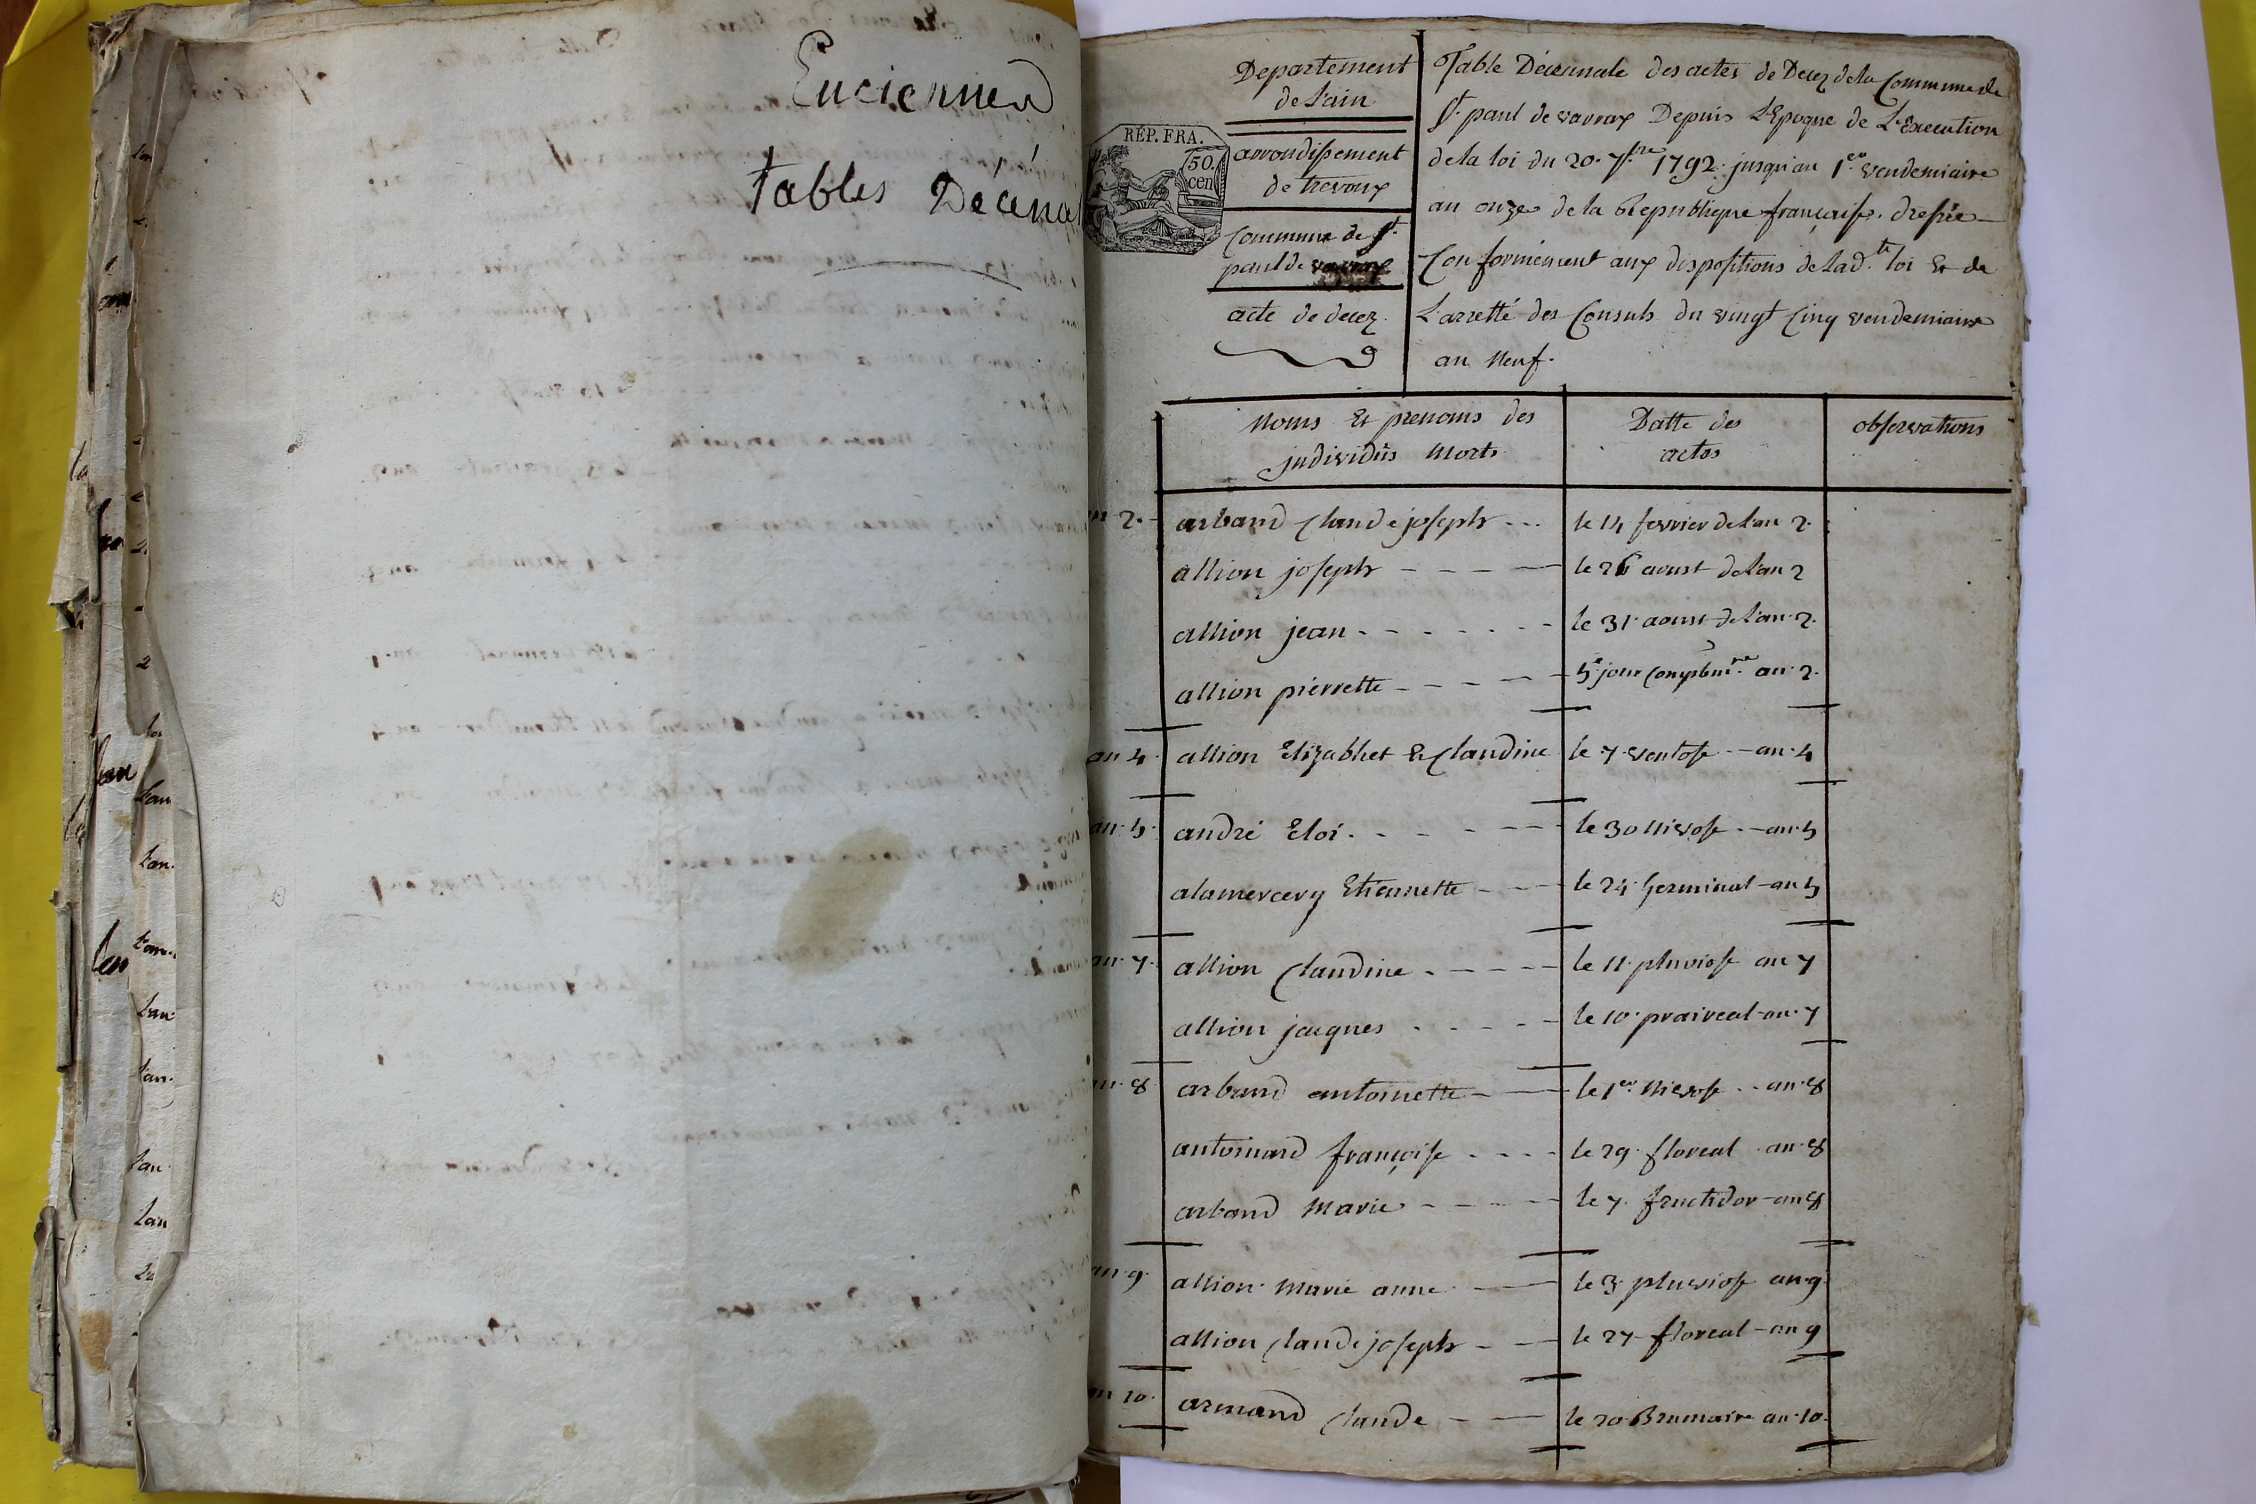 Enciennes
tables Décenal
RÉP. FRA.
50.
cen
Departement
de L'ain
arrondissement
de trevoux
Commune de St.
paul de varax
acte de decez.
Table Décennale des actes de Decez de la Commune de
St. paul de varax Depuis L'Epoque de L'Execution
de la loi du 20. 7bre 1792. jusqu'au 1er. vendemiaire
an onze de la Republique française. dressée
Conformément aux dispositions de Lad.te loi & de
L'arretté des Consuls du vingt Cinq vendemiaire
an Neuf.
Noms Et prenoms des
jndividüs Morts
Datte des
actes
observations
an 2. arband Claude joseph le 14 fevrier de L'an 2.
allion joseph le 26 aoust de L'an 2
allion jean le 31. aoust de L'an 2.
allion pierrette 5e. jour Complem.re an 2.
an 4. allion Elizabhet & Claudine le 7 ventose an 4
an 5. andré Eloi le 30 Nivose an 5
alamercery Etiennette le 24 Germinal an 5
an 7. allion Claudine le 11 pluviose an 7
allion jaques le 10 praireal an 7
an 8 arband antoinette le 1er. Nivose an 8
antoinard françoise le 29 floreal an 8
arband Marie le 7 fructidor an 8
an 9. allion Marie anne le 3 pluviose an 9
allion Claude joseph le 27 floreal an 9
an 10. armand Claude le 20 Brumaire an 10.